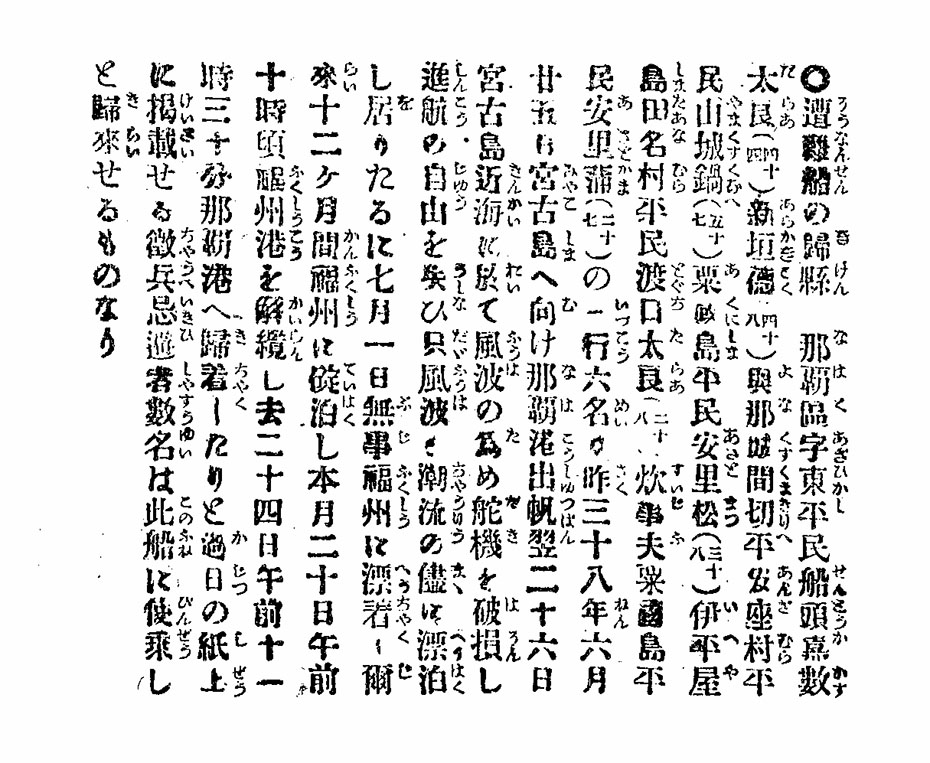 〇遭難船の歸縣　那覇區字東平民船頭嘉數
太良（四十四）新垣德（四十八）與那城間切平安座村平
民山城鍋（五十七）粟國島平民安里松（三十八）伊平屋
島田名村平民渡口太良（二十八）炊事夫粟國島平
民安里蒲（二十七）の一行六名は昨三十八年六月
廿五日宮古島へ向け那覇港出帆翌二十六日
宮古島近海に於て風波の爲め舵機を破損し
進航の自由を失ひ只風波と潮流の儘に漂泊
し居りたるに七月一日無事福州に漂着し爾
來十二ケ月間福州に碇泊し本月二十日午前
十時頃福州港を解纜し去二十四日午前十一
時三十分那覇港へ歸着したりと過日の紙上
に揭載せる徵兵忌避者數名は此船に便乘し
と歸來せるものなり